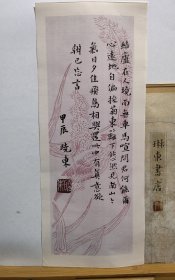 結廬在人境而無車馬喧問君何能爾
心遠地自偏採菊東籬下悠然見南山山
氣日夕佳飛鳥相與還此中有真意欲
辨已忘言
甲辰 曉東
琳東書店